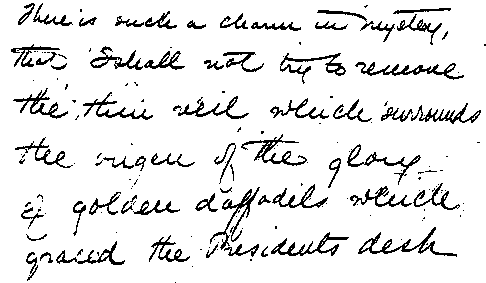 There is such a charm in mystery,
that I shall not try to remove
the thin veil which surrounds
the origen of the glory
of golden daffodels which
graced the Presidents desk